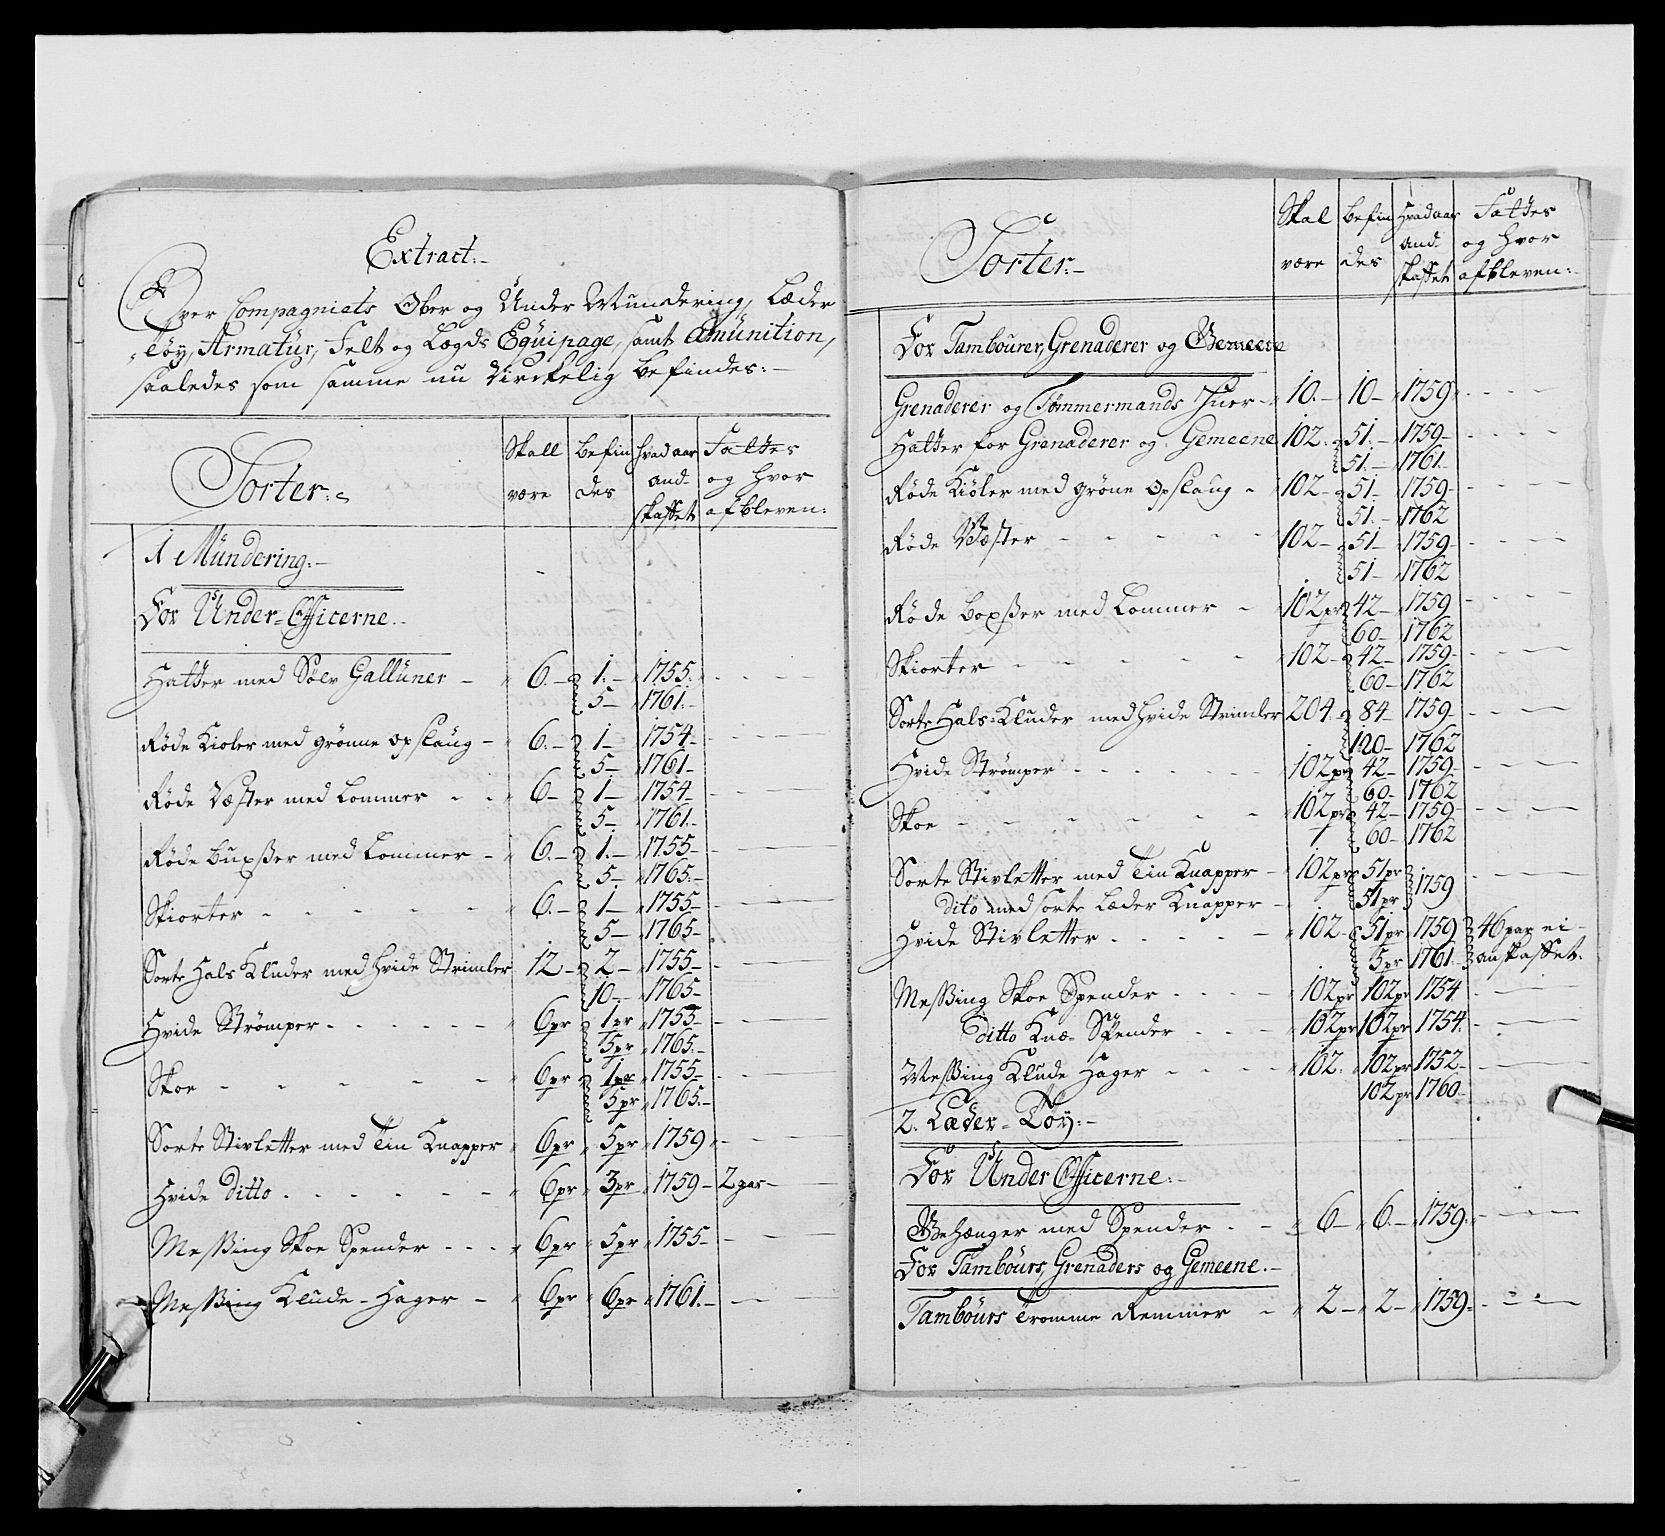 Extract:-
Over Compagniets Ober og Under Mundering, Læder
töy, Armatür, Felt og Lægds Eqüipage, samt Amünition,
saaledes som samme nu Virckelig befindes:-
Sorter:
Skall være | befindes | hvad aar andskaffet | Fattes og hvor afbleven:
1 Mündering:-
For Under-Officerne.
Hatter med Sölv Gallüner - 6.- 1.- 1755.
5- 1761.-
Röde Kioler med grönne opslaug - 6.- 1- 1754-
5- 1761-
Röde Væster med Lommer - - 6- 1- 1754-
5- 1761.-
Röde Buxsser med Lommer - 6.- 1.- 1755-
5- 1765.-
Skiorter - - - - - 6.- 1- 1755-
5- 1765-
Sorte Hals Kluder med hvide Strimler 12- 2- 1755-
10- 1765-
Hvide Strömper - - - - - - 6pr 1pr 1755-
5pr 1765.-
Skoe - - - - - - 6pr 1pr 1755-
5pr 1765.-
Sorte Stivletter med Tin Knapper 6pr 5pr 1759
Hvide ditto - - - - - - 6pr 3pr 1759- 2 par-
Messing Skoe Spender - - - 6pr 5pr 1755-
Messing Klude-Hager - 6pr 6pr 1761.-
Sorter:-
Skal være | befindes | hvad aar andskaffet | Fattes og hvor afbleven:-
For Tambourer, Grenaderer og Gemeene
Grenaderer og Tömmermands Huer - 10.- 10- 1759
Hatter for Grenaderer og Gemeene 102. 51.- 1759-
51.- 1761.
Röde Kioler med gröne opslaug - 102- 51- 1759-
51.- 1762
Röde Væster - - - - - 102- 51- 1759-
51- 1762
Röde Boxsser med Lommer - 102pr 42- 1759
60- 1762
Skiorter - - - - - 102- 42- 1759-
60- 1762
Sorte Hals-Kluder med hvide Strimler 204- 84- 1759-
120- 1762
Hvide Strömper - - - - - - 102pr 42- 1759-
60- 1762
Skoe - - - - - - 102pr 42- 1759-
60- 1762
Sorte Stivletter med Tin Knapper - 102pr 51pr 1759
dito med sorte Læder Knapper - 51pr
Hvide Stivletter - - - - - 102- 51pr 1759 46 par ei
5pr 1761- anskaffet.
Messing Skoe Spender - - - - 102pr 102pr 1754.
ditto Knæ-Spender - - - 102pr 102pr 1754.
Messing Klude Hager - - - - 102. 102pr 1752-
102pr 1760-
2. Læder-Töy:-
For Under Officerne.-
Gehænger med Spender - - 6- 6.- 1759.
For Tambours, Grenaders og Gemeene.-
Tambours Tromme Remmer - 2- 2- 1759-